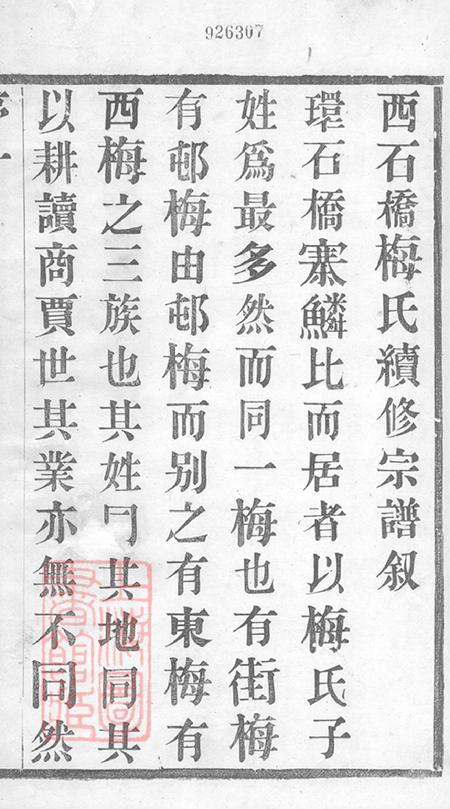 926307
西石橋梅氏續修宗譜叙
環石橋寨鱗比而居者以梅氏子
姓爲最多然而同一梅也有街梅
有邨梅由邨梅而别之有東梅有
西梅之三族也其姓同其地同其
以耕讀商賈世其業亦無不同然